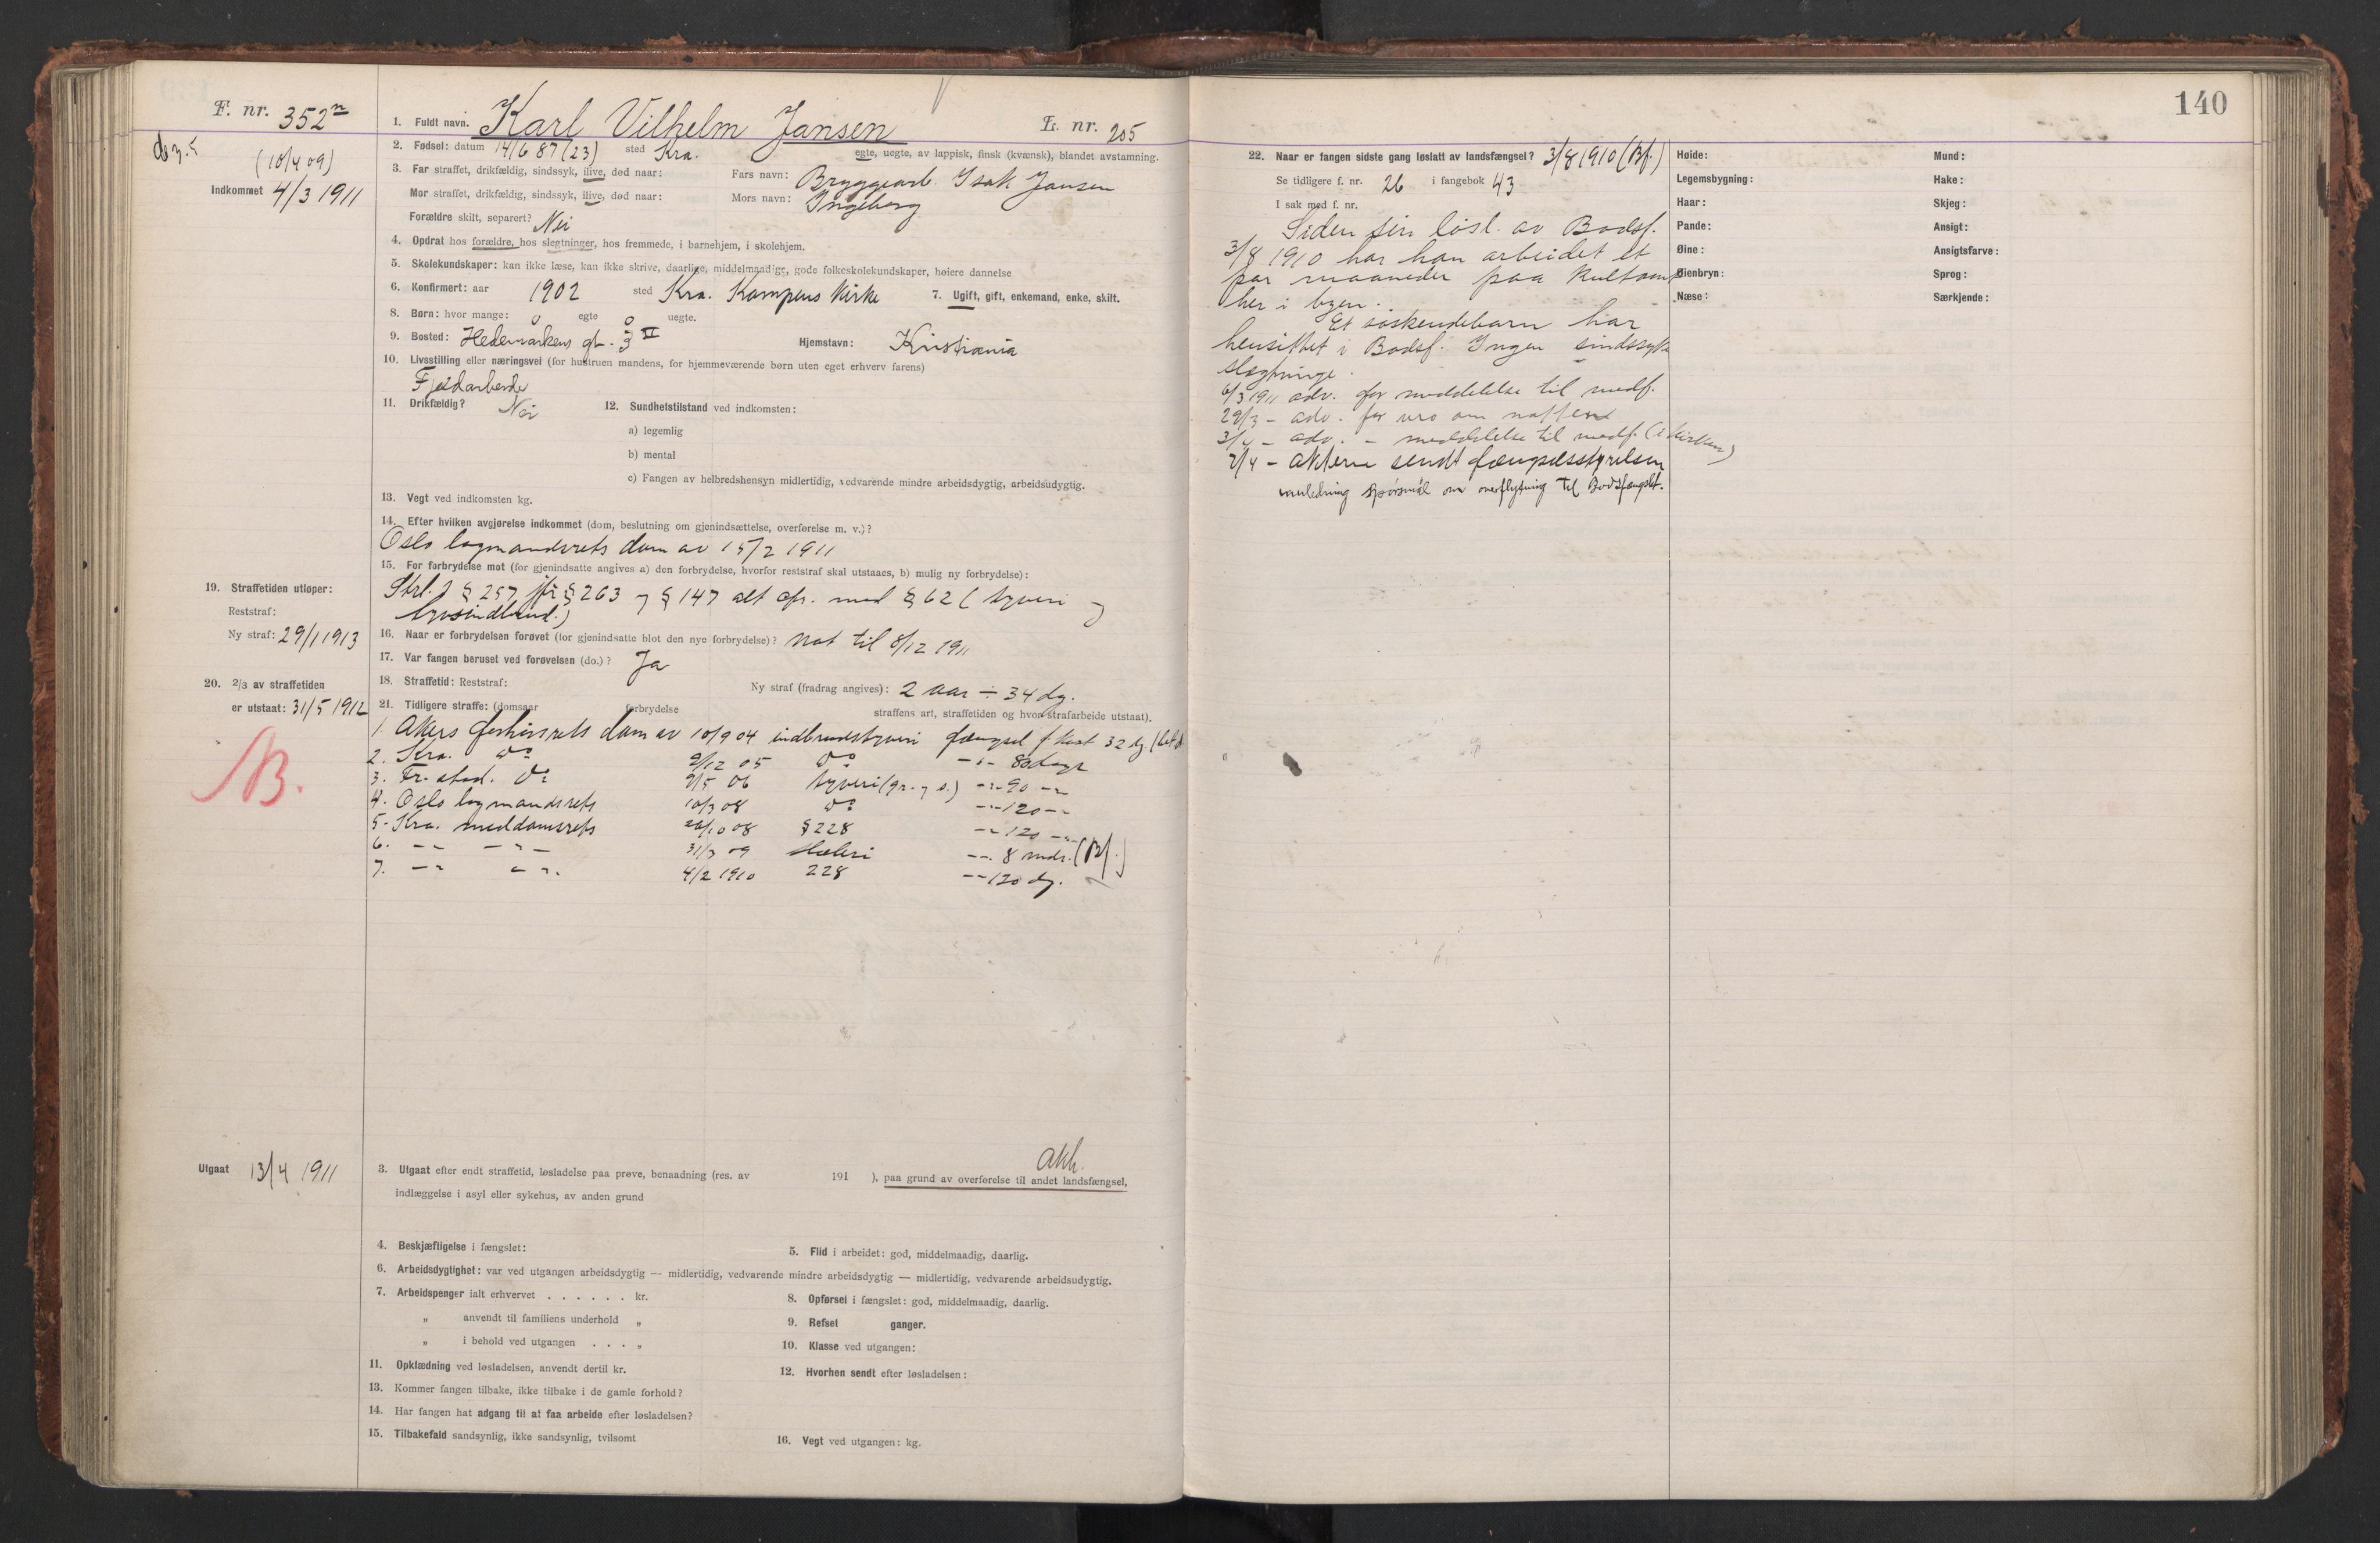 140
F. nr. 352n
1. Fuldt navn. Karl Vilhelm Jansen L. nr. 205
(10/4 09)
Indkommet 4/3 1911
2. Fødsel: datum 14/6 87 (23) sted Kra. egte, uegte, av lappisk, finsk (kvænsk), blandet avstamning.
3. Far straffet, drikfældig, sindssyk, ilive, død naar: Fars navn: Bryggearb. Isak Jansen
Mor straffet, drikfældig, sindssyk, ilive, død naar: Mors navn: Ingeborg
Forældre skilt, separert? Nei
4. Opdrat hos forældre, hos slegtninger, hos fremmede, i barnehjem, i skolehjem.
5. Skolekundskaper: kan ikke læse, kan ikke skrive, daarlige, middelmaadige, gode folkeskolekundskaper, høiere dannelse
6. Konfirmert: aar 1902 sted Kra. Kampens Kirke 7. Ugift, gift, enkemand, enke, skilt.
8. Børn: hvor mange: 0 egte 0 uegte.
9. Bosted: Hedemarkens gt. 3 II Hjemstavn: Kristiania
10. Livsstilling eller næringsvei (for hustruen mandens, for hjemmeværende børn uten eget erhverv farens)
Fjeldarbeider
11. Drikfældig? Nei 12. Sundhetstilstand ved indkomsten:
a) legemlig
b) mental
c) Fangen av helbredshensyn midlertidig, vedvarende mindre arbeidsdygtig, arbeidsudygtig.
13. Vegt ved indkomsten kg.
14. Efter hvilken avgjørelse indkommet (dom, beslutning om gjenindsættelse, overførelse m. v.)?
Oslo lagmandsrets dom av 15/2 1911
15. For forbrydelse mot (for gjenindsatte angives a) den forbrydelse, hvorfor reststraf skal utstaaes, b) mulig ny forbrydelse):
Strl. § 257, jfr § 263 og § 147 alt smh. med § 62 (tyveri og
16. Naar er forbrydelsen forøvet (for gjenindsatte blot den nye forbrydelse)? Nat til 8/12 1911
17. Var fangen beruset ved forøvelsen (do.)? Ja
18. Straffetid: Reststraf: Ny straf (fradrag angives): 2 aar ÷ 34 dg.
19. Straffetiden utløper:
Reststraf:
Ny straf: 29/1 1913
20. 2/3 av straffetiden
er utstaat: 31/5 1912
21. Tidligere straffe: (domsaar forbrydelse straffens art, straffetiden og hvor strafarbeide utstaat).
1. Akers forhørsrets dom av 10/9 04 indbrudstyveri fængsel f. kost 32 dg.
2. Kra. do 9/12 05 do -"- 80 dage
3. Fr.stad. do 9/5 06 tyveri -"- 90 -"-
4. Oslo lagmandsrets 10/3 08 do -"- 120 -"-
5. Kra. meddomsrets 26/10 08 § 228 -"- 120 -"-
6. -"- -"- 31/3 09 Hæleri -"- 8 mdr. (Bf.)
7. -"- -"- 4/2 1910 228 -"- 120 dg.
Utgaat 13/4 1911
Akh.
3. Utgaat efter endt straffetid, løsladelse paa prøve, benaadning (res. av 191 ), paa grund av overførelse til andet landsfængsel,
indlæggelse i asyl eller sykehus, av anden grund
4. Beskjæftigelse i fængslet: 5. Flid i arbeidet: god, middelmaadig, daarlig.
6. Arbeidsdygtighet: var ved utgangen arbeidsdygtig — midlertidig, vedvarende mindre arbeidsdygtig — midlertidig, vedvarende arbeidsudygtig.
7. Arbeidspenger ialt erhvervet . . . . . . kr. 8. Opførsel i fængslet: god, middelmaadig, daarlig.
„ anvendt til familiens underhold „ 9. Refset ganger.
„ i behold ved utgangen . . . „ 10. Klasse ved utgangen:
11. Opklædning ved løsladelsen, anvendt dertil kr. 12. Hvorhen sendt efter løsladelsen:
13. Kommer fangen tilbake, ikke tilbake i de gamle forhold?
14. Har fangen hat adgang til at faa arbeide efter løsladelsen?
15. Tilbakefald sandsynlig, ikke sandsynlig, tvilsomt 16. Vegt ved utgangen: kg.
22. Naar er fangen sidste gang løslatt av landsfængsel? 3/8 1910 (Bf.)
Se tidligere f. nr. 26 i fangebok 43
I sak med f. nr.
Siden sin løsl. av Bodsf.
3/8 1910 har han arbeidet et
par maaneder paa
her i byen.
Et søskendebarn har
hensittet i Bodsf. Ingen sindssyke
slegtninge.
6/3 1911 adv. for meddelelse til medf.
29/3 - adv. for uro om natten
3/4 - adv. - meddelelse til medf. (i kirken)
7/4 - Akterne sendt fængselsstyrelsen
anledning spørsmål om overflytning til Bodsfængslet.
Høide: Mund:
Legemsbygning: Hake:
Haar: Skjeg:
Pande: Ansigt:
Øine: Ansigtsfarve:
Øienbryn: Sprog:
Næse: Særkjende: